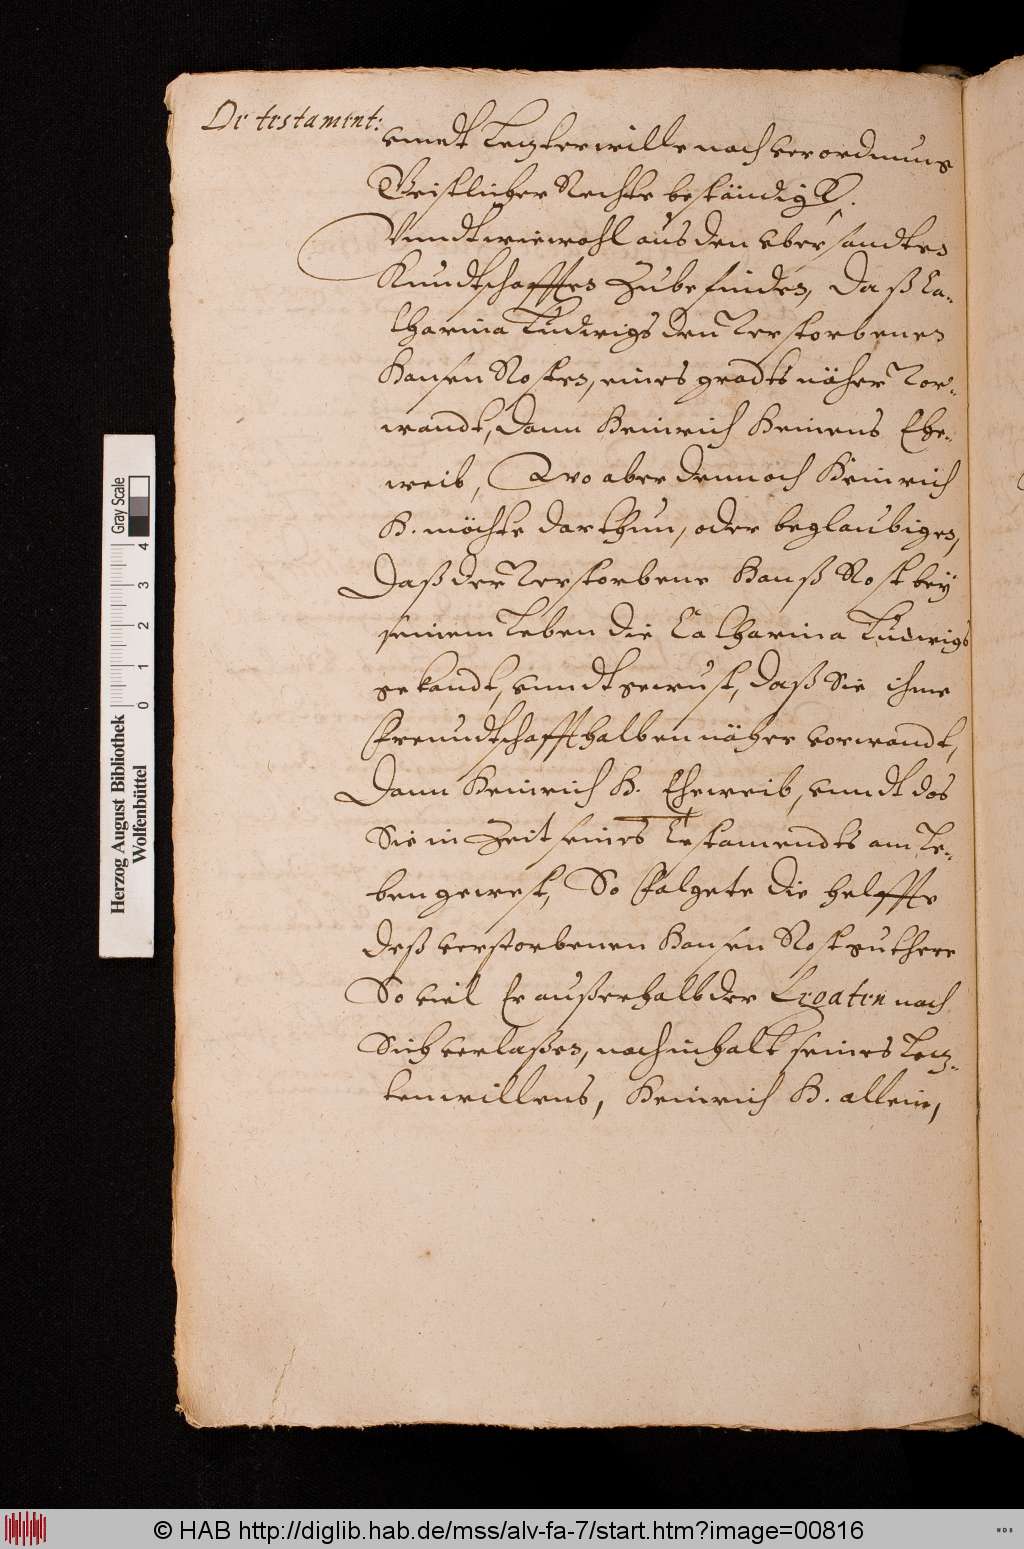 De testament:
vnndt Letzterwille nach verordnung
Geistlicher Rechte bestendigk.
Vnndt wiewohl aus den vbersandten
Kundtschafften Zubefinden, Daß Ca-
tharina Ludwigs den Verstorbenen
Hansen Rosten, eines gradts näher Vor-
wandt, dann Heinrich Heinens Ehe-
weib, Wo aber dennoch Heinrich
H. möchte darthun, oder beglaubigen,
Daß der Verstorbene Hanß Rost bey
seinem Leben die Catharina Ludwigs
gekandt, vnndt gewust, daß Sie ihme
Freundtschafft halben näher vorwandt,
Dann Heinrich H. Eheweib, vnndt das
Sie in Zeit seines Testamendts am Le-
ben gewest, So Folgete die helffte
deß verstorbenen Hansen Rost guthere
So viel Er außerhalb der Croaten nach
Sich verlaßen, nach inhalt seines Letz-
tenwillens, Heinrich H. allein,
Herzog August Bibliothek
Wolfenbüttel
Gray Scale
0 1 2 3 4
© HAB http://diglib.hab.de/mss/alv-fa-7/start.htm?image=00816